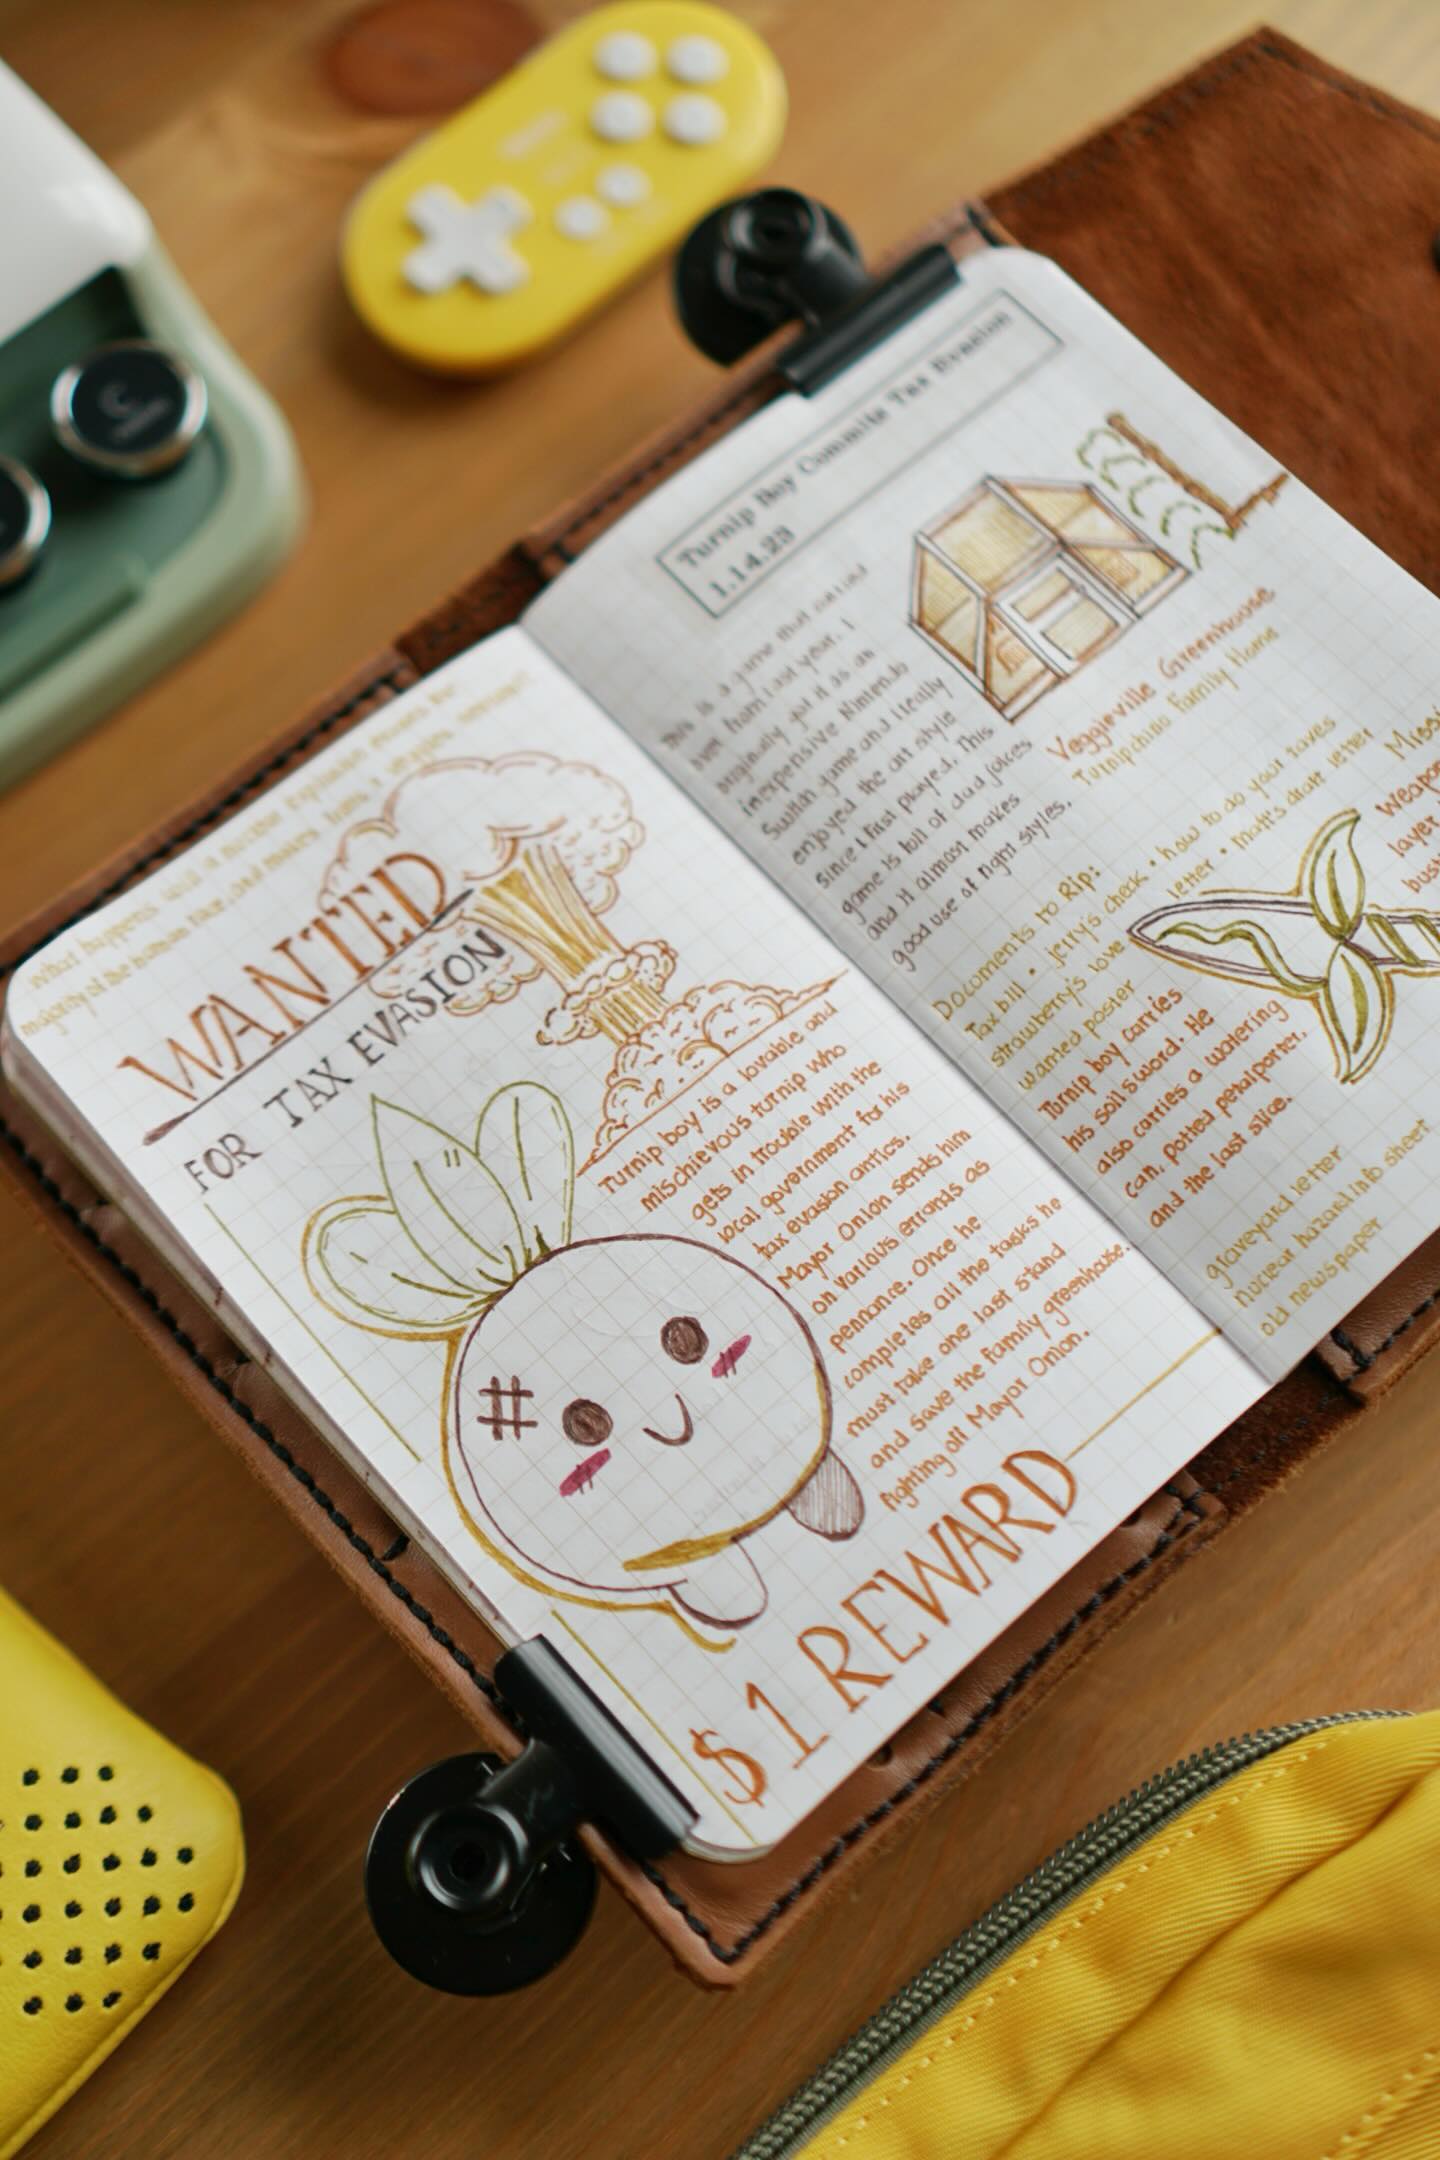 what happens when a nuclear explosion
majority of the human race, and makes
WANTED
FOR TAX EVASION
Turnip boy is a lovable and
mischievous turnip who
gets in trouble with the
local government for his
tax evasion antics.
Mayor Onion sends him
on various errands as
pennance. Once he
completes all the tasks he
must take one last stand
and save the family greenhouse
fighting off Mayor Onion.
$1 REWARD
Turnip Boy Commits Tax Evasion
1.14.23
This is a game that carried
over from last year. I
originally got it as an
inexpensive Nintendo
Switch game and really
enjoyed the art style
since I first played. This
game is full of dad jokes
and it almost makes
good use of night styles.
Veggieville Greenhouse
Turnipchino Family Home
Documents to Rip:
Tax bill • jerry's check • how to do your taxes
strawberry's love letter • matt's draft letter
wanted poster
graveyard letter
nuclear hazard info sheet
old newspaper
Turnip boy carries
his soil sword. He
also carries a watering
can, potted petalporter,
and the last slice.
weapo
layer